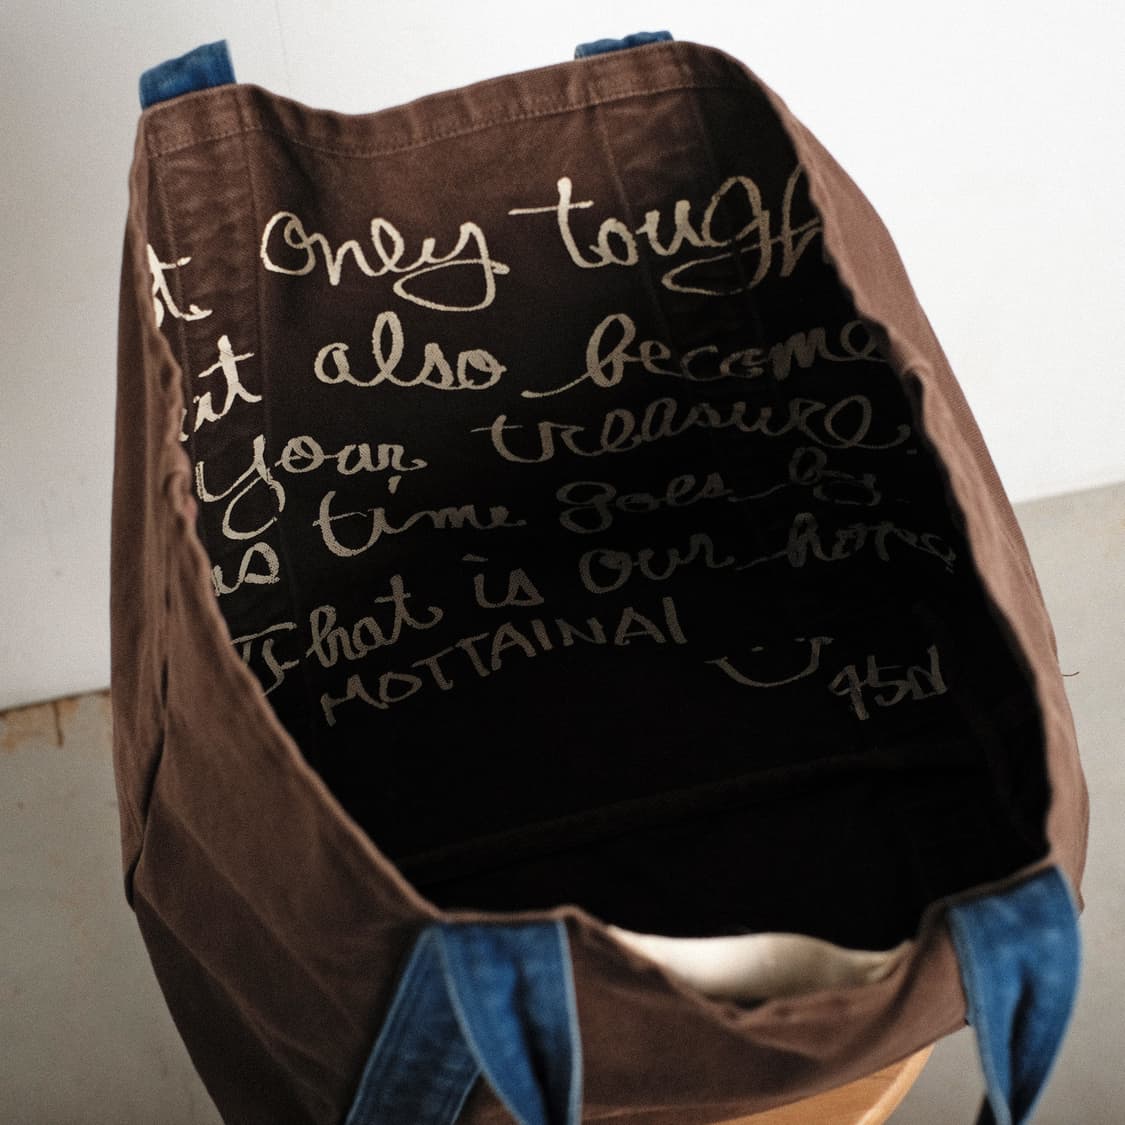 only tough
also become
your treasure
as time goes by.
That is our hope
MOTTAINAI
45R